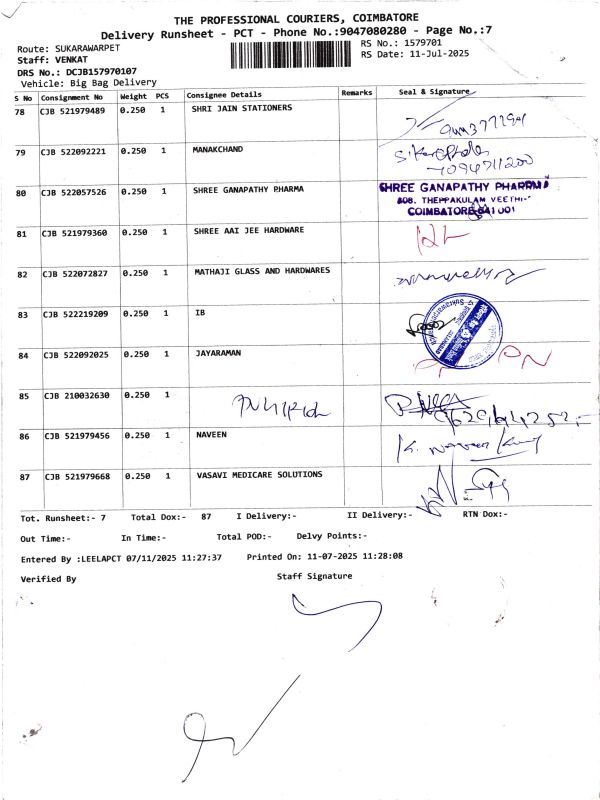 THE PROFESSIONAL COURIERS, COIMBATORE
Delivery Runsheet - PCT - Phone No.:9047080280 - Page No.:7
Route: SUKARAWARPET
RS No.: 1579701
Staff: VENKAT
RS Date: 11-Jul-2025
DRS No.: DCJB157970107
Vehicle: Big Bag Delivery
S No Consignment No Weight PCS Consignee Details Remarks Seal & Signature
78 CJB 521979489 0.250 1 SHRI JAIN STATIONERS
79 CJB 522092221 0.250 1 MANAKCHAND
80 CJB 522057526 0.250 1 SHREE GANAPATHY PHARMA
SHREE GANAPATHY PHARMA
608. THEPPAKULAM VEETHI-
COIMBATORE-641 001
81 CJB 521979360 0.250 1 SHREE AAI JEE HARDWARE
82 CJB 522072827 0.250 1 MATHAJI GLASS AND HARDWARES
83 CJB 522219209 0.250 1 IB
84 CJB 522092025 0.250 1 JAYARAMAN
PN
85 CJB 210032630 0.250 1
86 CJB 521979456 0.250 1 NAVEEN K. Naveen Kumar
87 CJB 521979668 0.250 1 VASAVI MEDICARE SOLUTIONS
Tot. Runsheet:- 7 Total Dox:- 87 I Delivery:- II Delivery:- RTN Dox:-
Out Time:- In Time:- Total POD:- Delvy Points:-
Entered By :LEELAPCT 07/11/2025 11:27:37 Printed On: 11-07-2025 11:28:08
Verified By Staff Signature